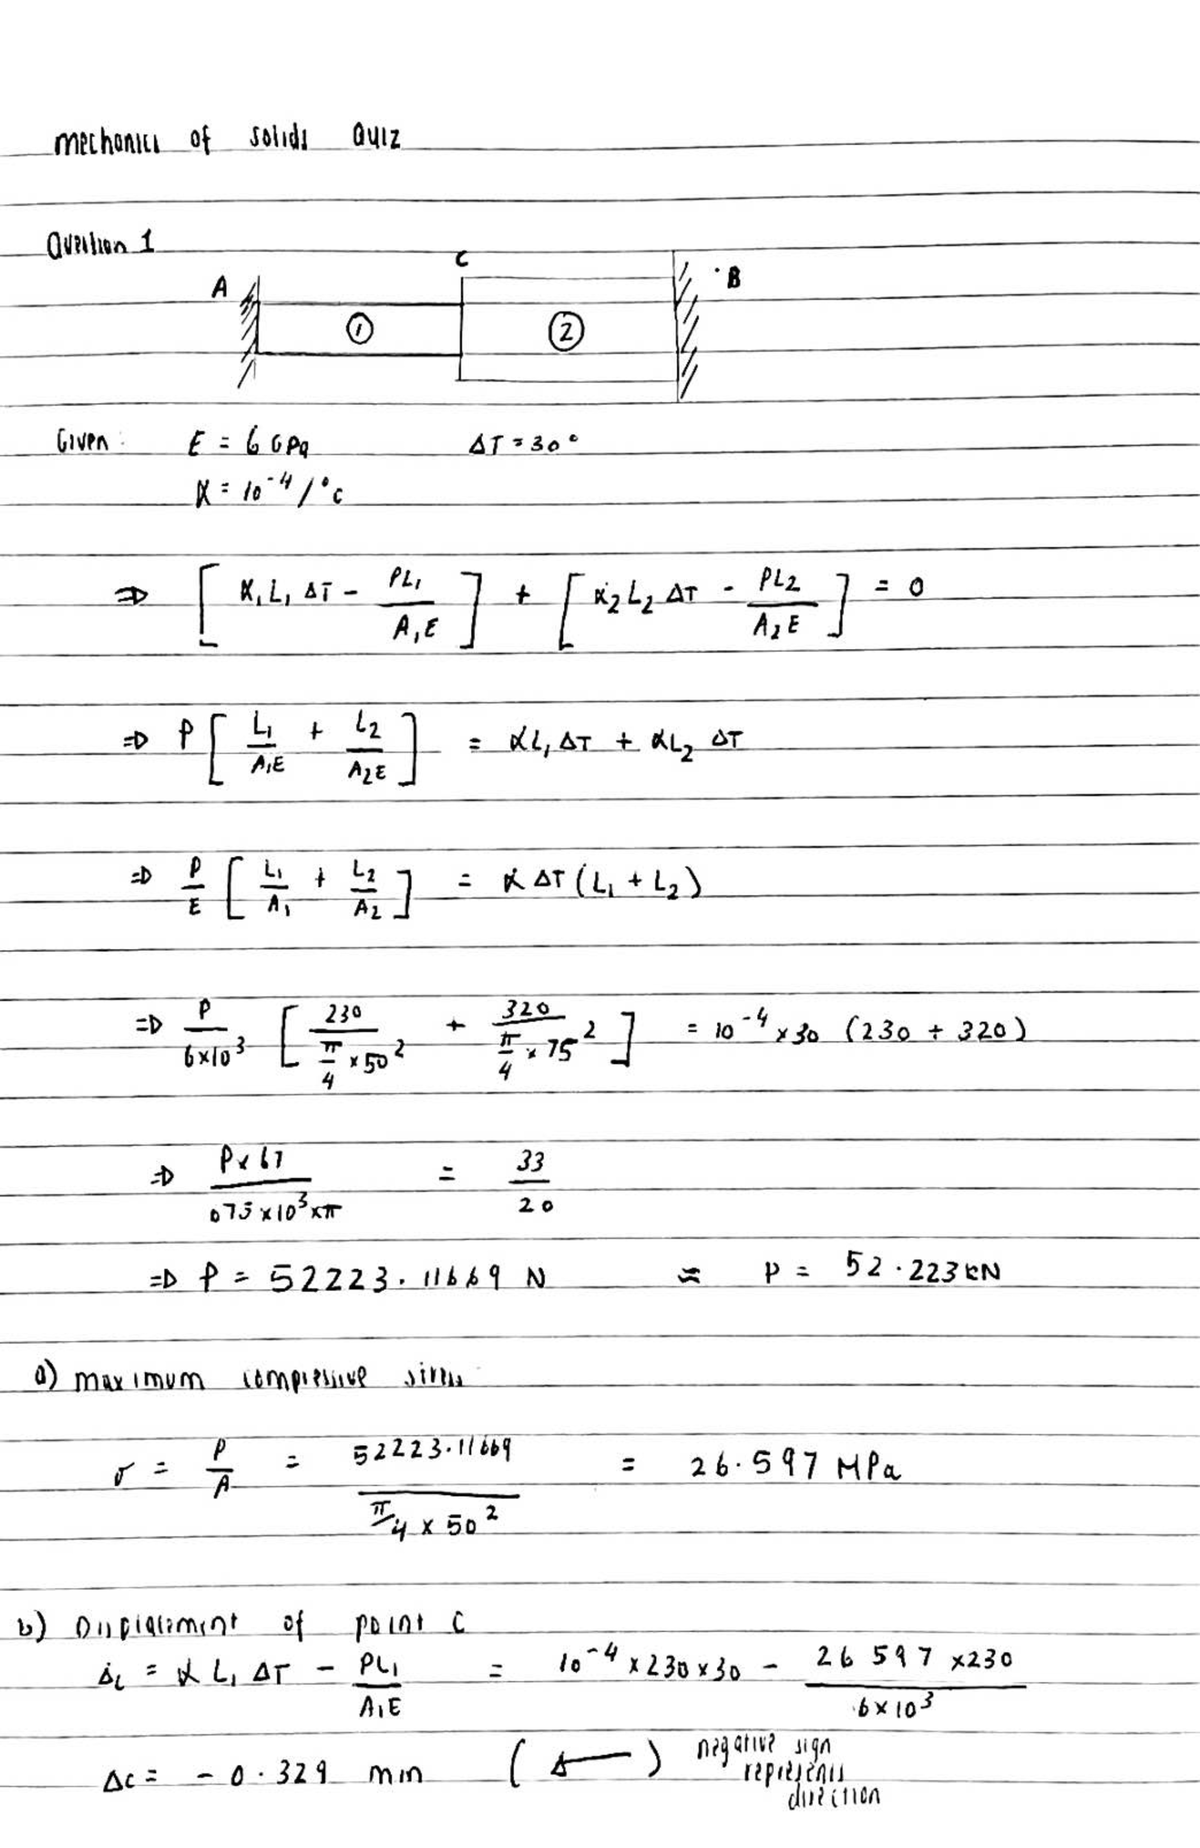 mechanics of solids Quiz
Question 1
A C B
① ②
Given: E = 6 GPa ΔT = 30°
α = 10⁻⁴ /°c
⇒ [ α₁ L₁ ΔT - PL₁ / A₁E ] + [ α₂ L₂ ΔT - PL₂ / A₂E ] = 0
⇒ P [ L₁ / A₁E + L₂ / A₂E ] = αL₁ ΔT + αL₂ ΔT
⇒ P / E [ L₁ / A₁ + L₂ / A₂ ] = α ΔT (L₁ + L₂)
⇒ P / 6×10³ [ 230 / π/4 × 50² + 320 / π/4 × 75² ] = 10⁻⁴ × 30 (230 + 320)
⇒ P × 67 / 675 × 10³ × π = 33 / 20
⇒ P = 52223.11669 N ≈ P = 52.223 kN
a) maximum compressive stress
σ = P / A = 52223.11669 / π/4 × 50² = 26.597 MPa
b) Displacement of point C
Δc = α L₁ ΔT - PL₁ / A₁E = 10⁻⁴ × 230 × 30 - 26.597 × 230 / 6 × 10³
Δc = - 0.329 mm ( ← ) negative sign
represents
direction